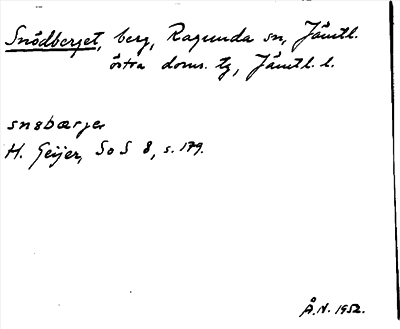 Snödberget, berg, Ragunda sn, Jämtl.
östra doms. tg, Jämtl. l.
snøbærjer
H. Geijer, SoS 8, s. 179.
Å.N. 1952.